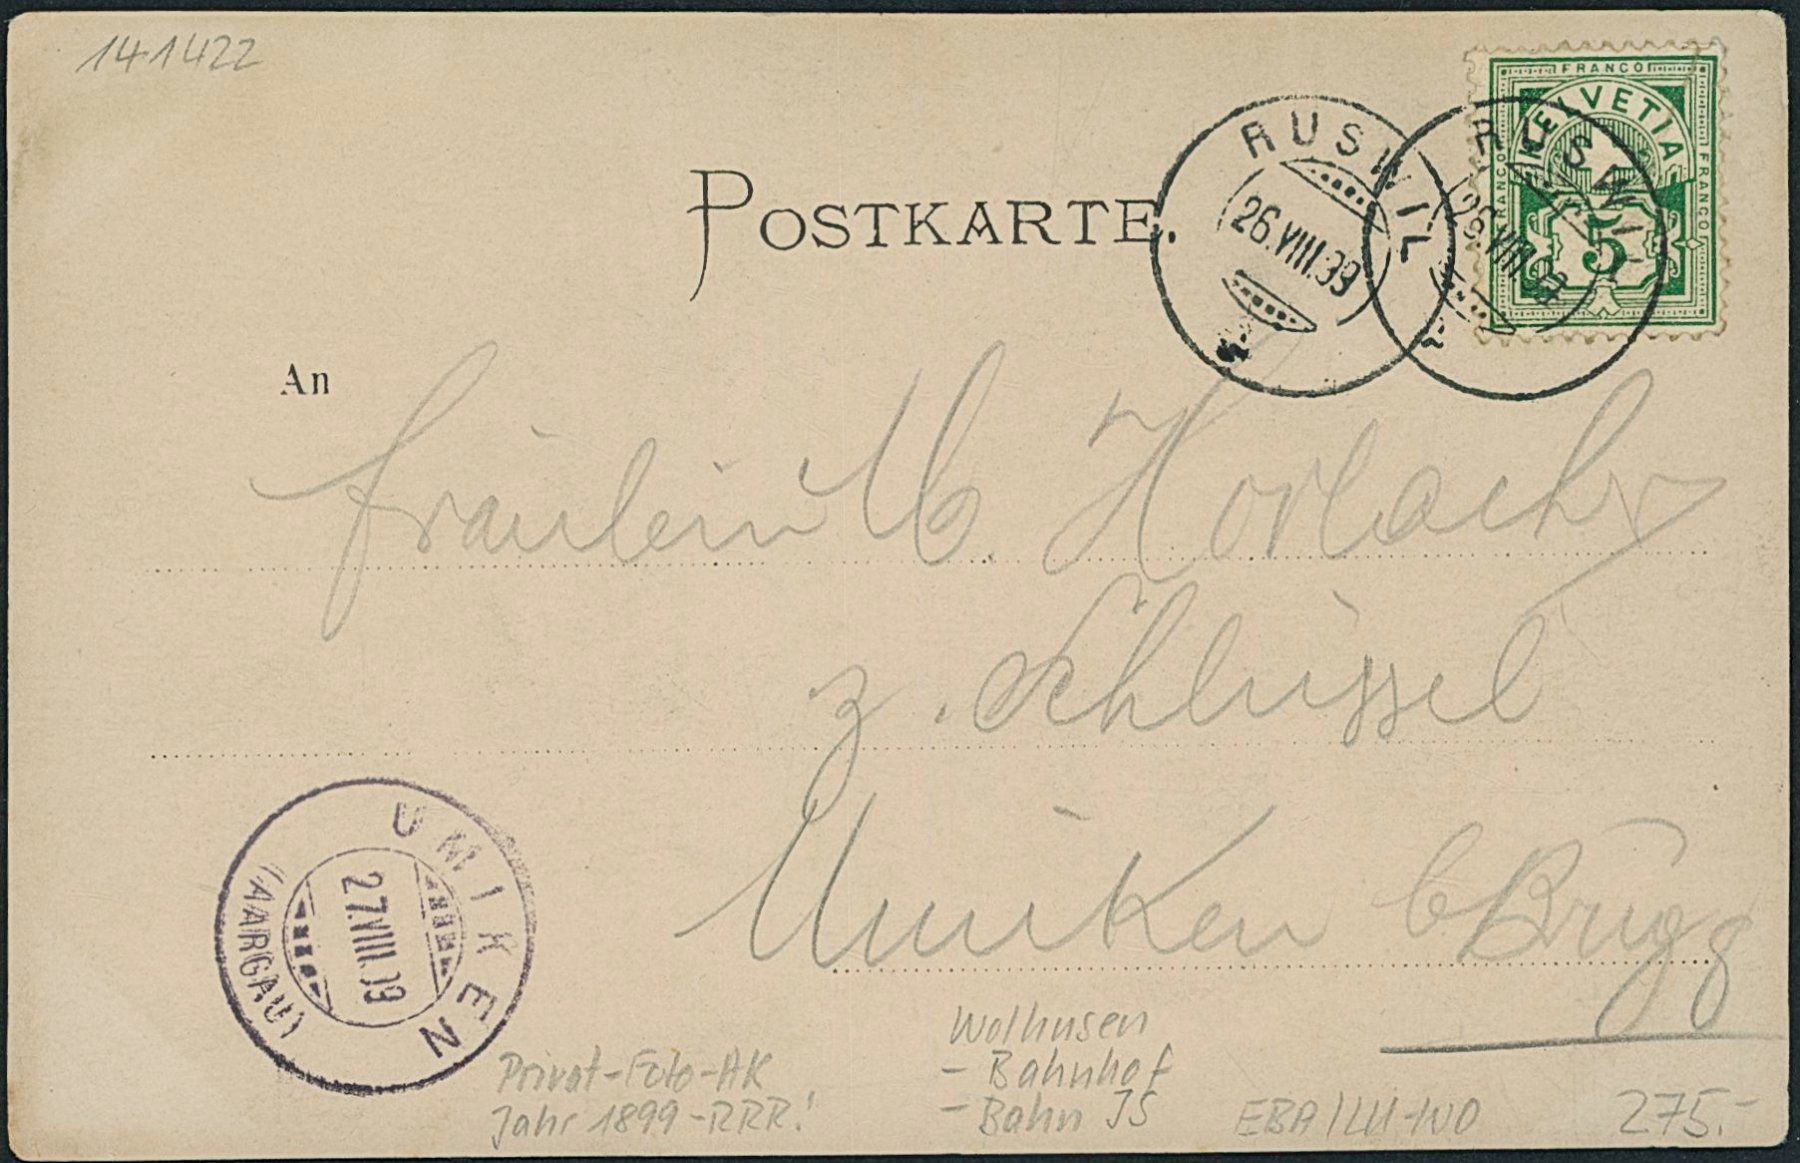 141422
FRANCO
HELVETIA
FRANCO
FRANCO
5
RUSWIL
26.VIII.99
RUSWIL
26.VIII.99
POSTKARTE.
An
Fräulein M. Horlacher
z. Schlüssel
Umiken b Brugg
UMIKEN
27.VIII.99
(AARGAU)
Privat-Foto-AK
Jahr 1899-RRR!
Wolhusen
- Bahnhof
- Bahn JS
EBA/LU-WO
275.-